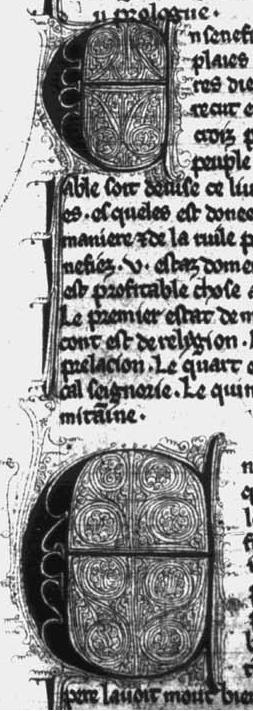 u prologue.
n senef
plaies
res die
recut e
croiz p
peuple
able soit deuise ce liu
es. es queles est donee
maniere ⁊ de la riule p
nefiez. v. estaz dome
est profitable chose a
Le premier estat de m
cont est de religion. l
prelacion. Le quart e
cal seignorie. Le quin
mitaine.
n
q
l
pere lauoit mout bien